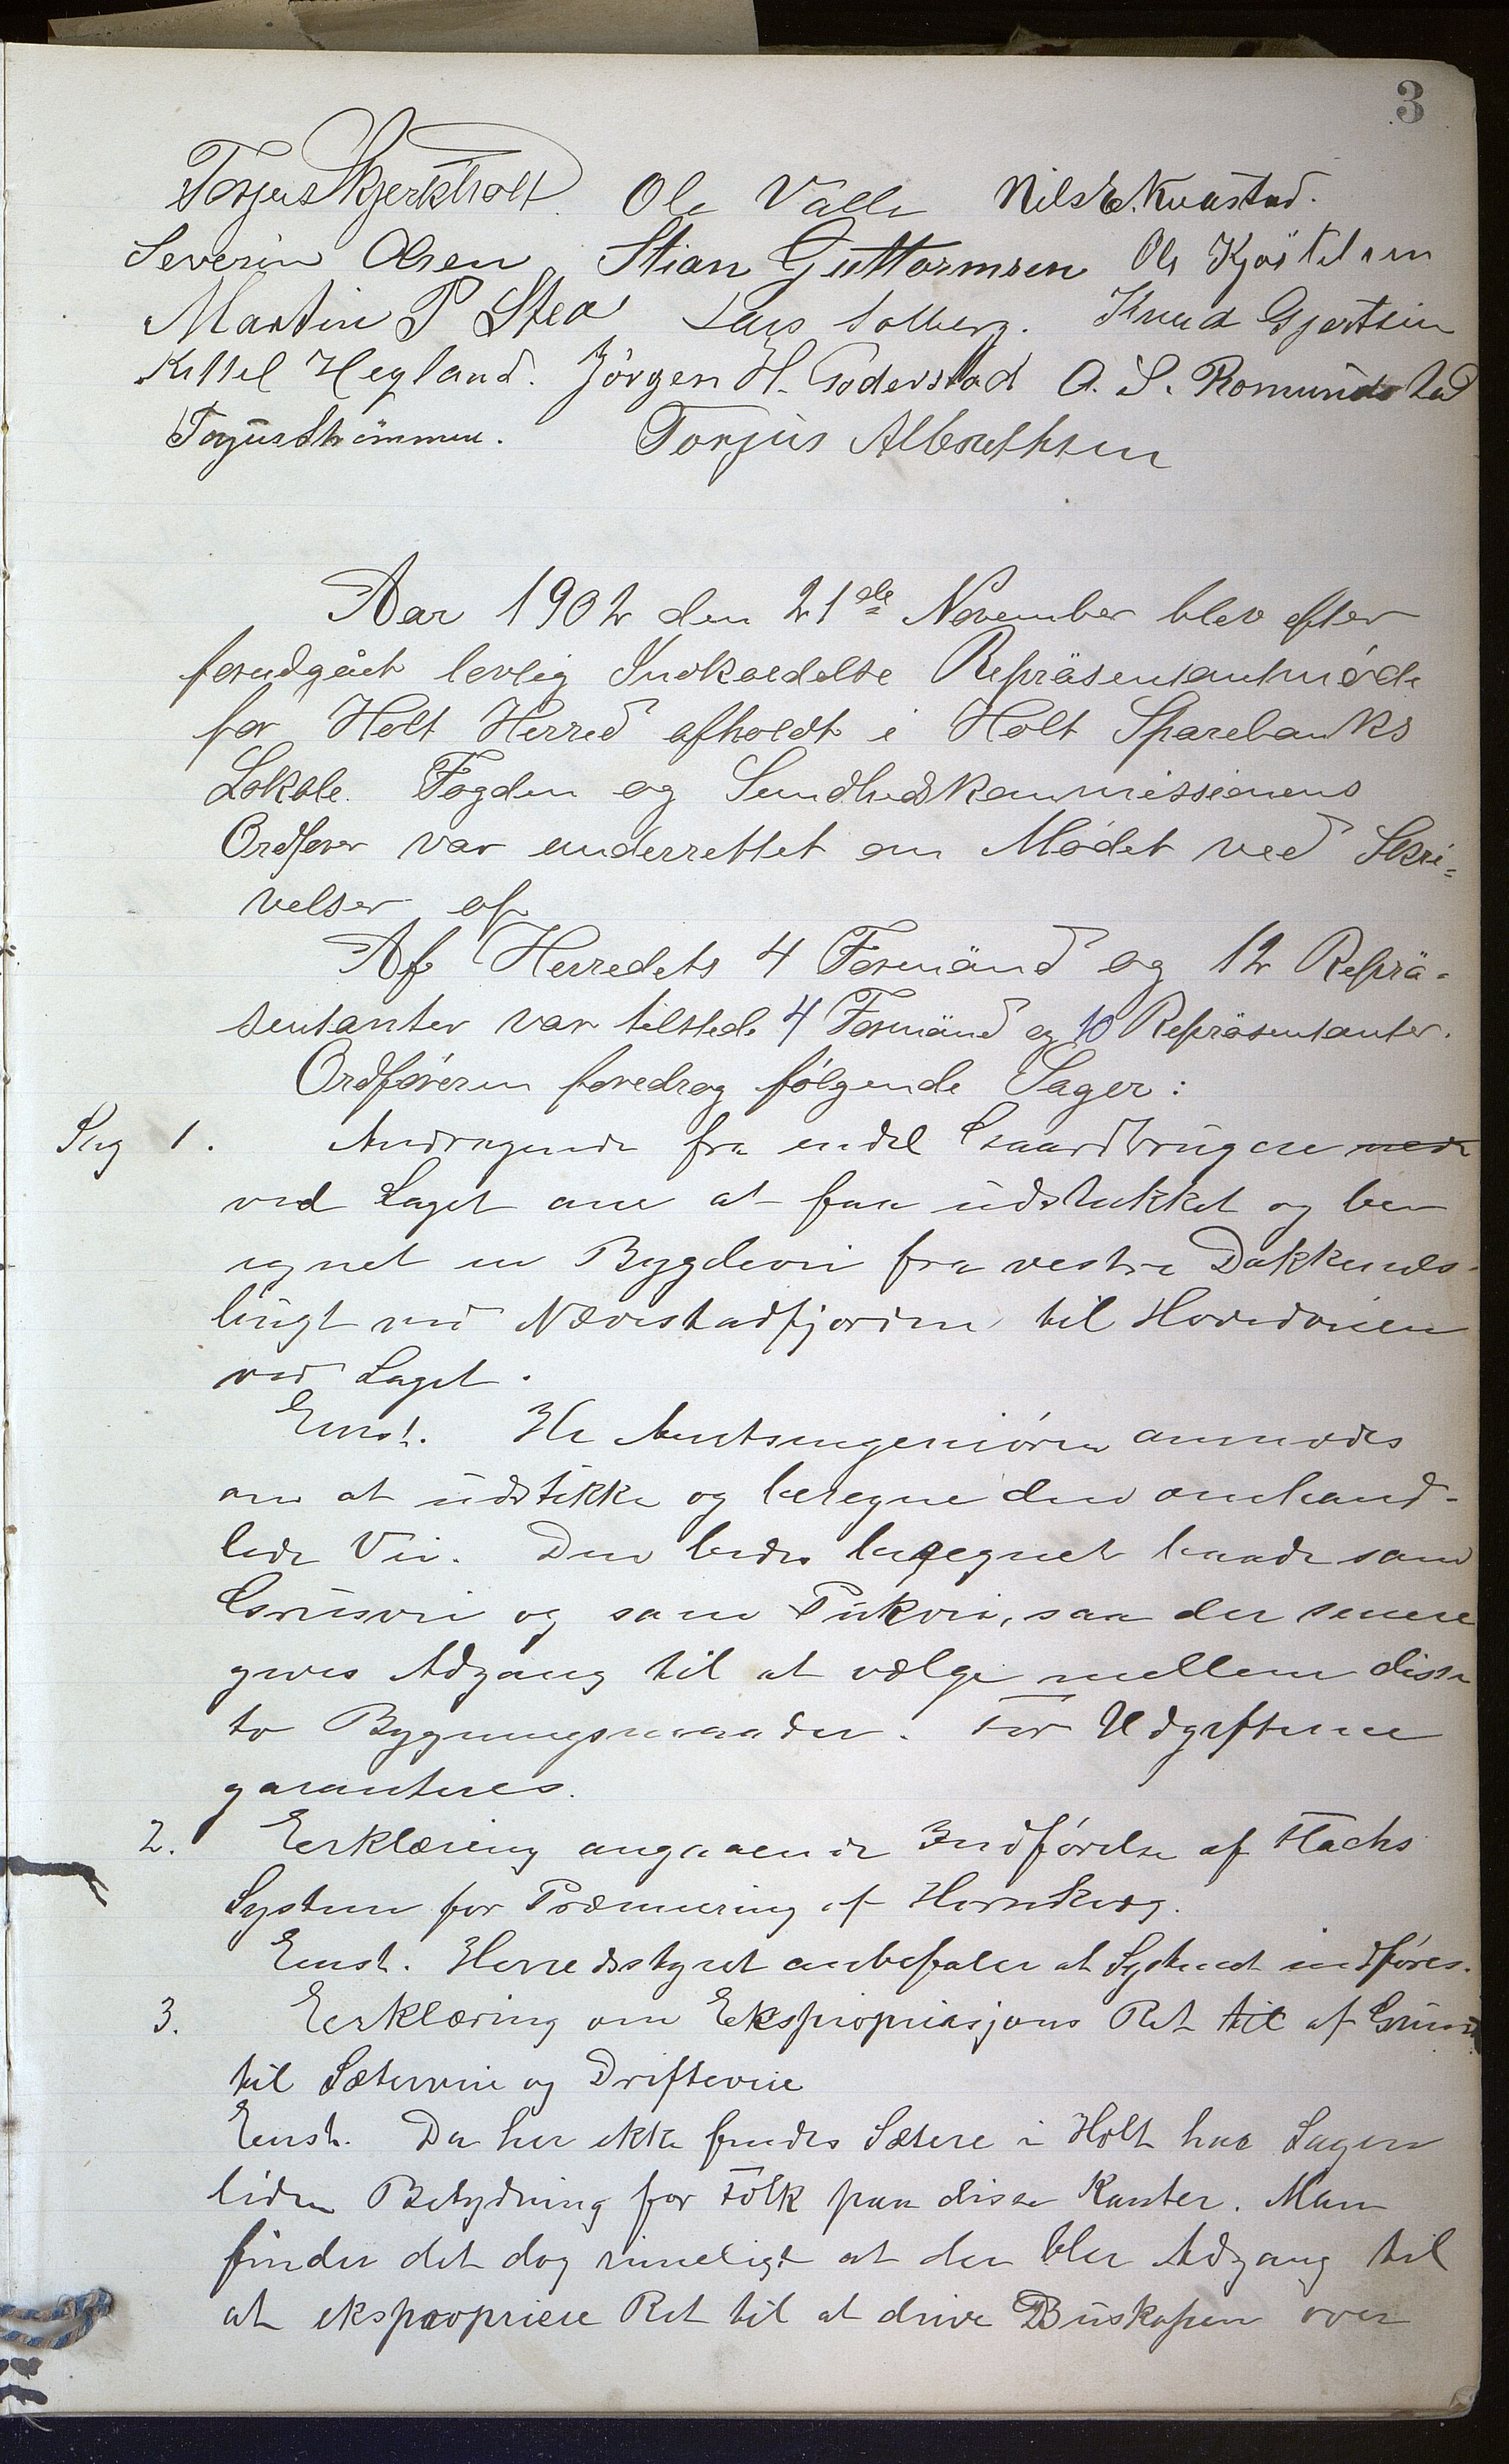 3
Torjus Skjerkholt Ole Valle Nils E. Kvastad.
Severin Olsen Stian Guttormsen Ole Kjöstelsen
Martin P Stea Lars Solberg. Knud Gjertsen
Kittel Hegland. Jörgen H. Goderstad O. S. Romundstad
Torjus Strömmen. Torjus Albrethsen
Aar 1902 den 21de November blev efter
forudgået lovlig Indkaldelse Repräsentantmøde
for Holt Herred afholdt i Holt Sparebanks
Lokale. Fogden og Sundhedskommissionens
Ordfører var underrettet om Mødet ved Skri-
velser af
Af Herredets 4 Formänd og 12 Reprä-
sentanter var tilstede 4 Formänd og 10 Repräsentanter.
Ordføreren foredrog følgende Sager:
Sag 1. Andragende fra endel Gaardbrugere
ved Laget om at faa udstukket og ber
egnet en Bygdevei fra vestre Dakkends-
bugt ved Nævestadfjorden til Hovedveien
ved Laget.
Enst. Hr Amtsingeniøren anmodes
om at udstikke og beregne den omhand-
lede Vei. Den bedes beregnet baade som
Grusvei og som Pukvei, saa der senere
gives Adgang til at vælge mellem disse
to Bygningsmaader. For Udgifterne
garanteres.
2. Erklæring angaaende Indførelse af Hachs
System for Præmiering af Hornkvæg.
Enst. Herredsstyret anbefaler at Systemet indføres.
3. Erklæring om Ekspropriasjons Ret til af Grund
til Sæterveie og Drifteveie
Enst. Da her ikke findes Sætere i Holt har Sagen
liden Betydning for Folk paa disse Kanter. Man
finder det dog rimeligt at der blir Adgang til
at ekspropriere Ret til at drive Buskapen over